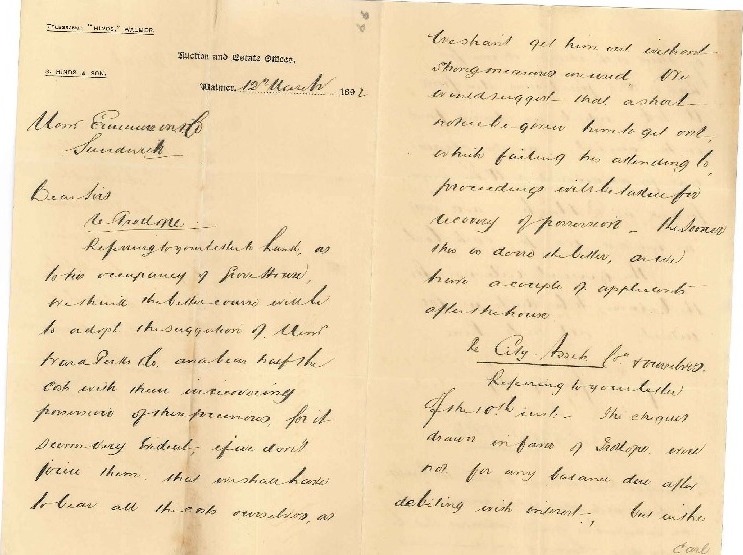 TELEGRAMS "HINDS," WALMER.
Auction and Estate Offices,
S. HINDS & SON.
Walmer, 12th March 1892
Messrs Emmerson & Co
Sandwich
Dear Sirs
re Trollope
Referring to your letter to hand, as
to his occupancy of Grove House,
we think the better course will be
to adopt the suggestion of Messrs
Co. and bear half the
cost with them in recovering
possession of the premises, for it
seems very evident, if we don't
join them, that we shall have
to bear all the costs ourselves, as
we shant get him out without
strong measures are used We
would suggest that a short
notice be given him to get out,
which failing his attending to,
proceedings will be taken for
recovery of possession - the sooner
this is done the better, as we
have a couple of applicants
after the house
re City Assets Co & ourselves.
Referring to your letter
of the 10th inst - The cheques
drawn in favor of Trollope were
not for any balance due after
debiting with interest, but in the
Earl